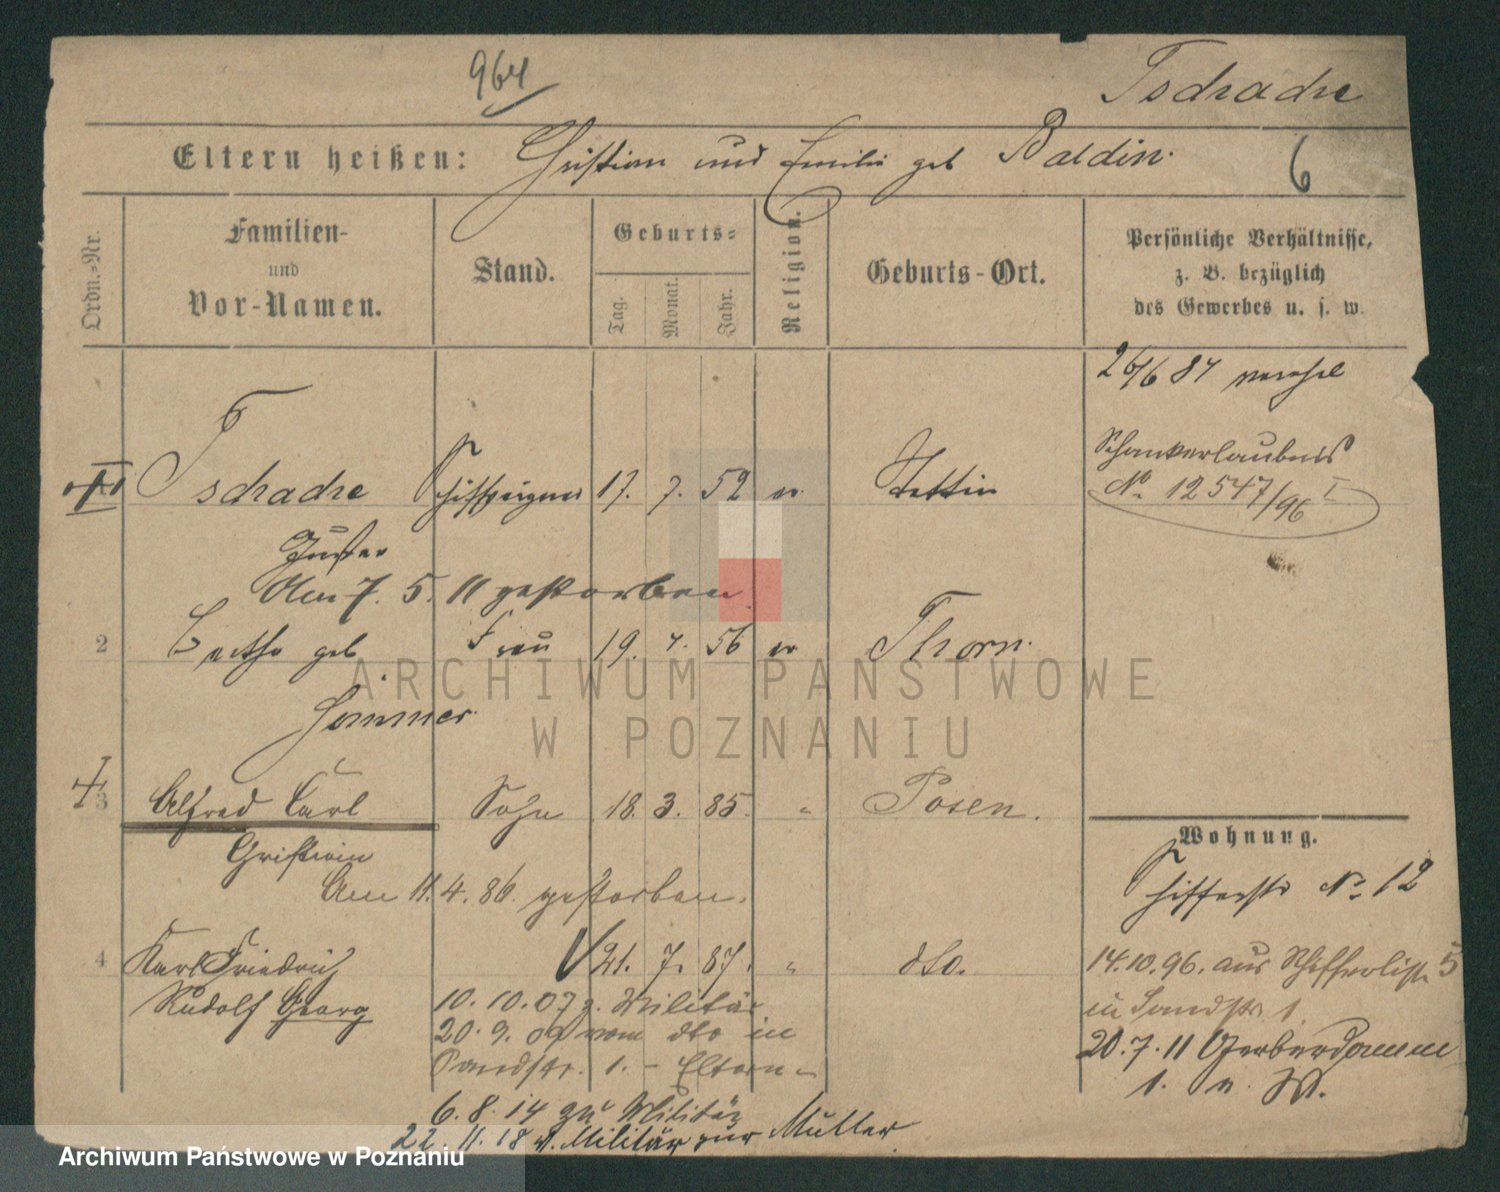 964
Tschache
Eltern heißen: Christian und Emilie geb Baldin.
6
Ordn.-Nr.
Familien-
und
Vor-Namen.
Stand.
Geburts-
Tag.
Monat.
Jahr.
Religion.
Geburts-Ort.
Persönliche Verhältnisse,
z. B. bezüglich
des Gewerbes u. s. w.
26/6 84
Schankerlaubnis
No 12547/96 I
Tschache Schiffseigner 17. 7. 52 ev Stettin
Gustav
Am 7. 5. 11 gestorben.
2 Bertha geb Frau 19. 4. 56 ev Thorn.
Sommer
3 Alfred Carl Sohn 18. 3. 85. " Posen.
Christian
Am 11. 4. 86. gestorben.
Wohnung.
Schifferstr No 12
4 Karl Friedrich 21. 7. 87. " dto.
Rudolf Georg
14.10.96. aus Schifferstr. 5
in Sandstr 1.
10. 10. 07 z. Militär
20. 9. 09 vom dto in
Sandstr. 1. - Eltern -
20. 7. 11 Gerberdamm
1. n. W.
6. 8. 14 zu Militär
22. 11. 18 v. Militär zur Mutter.
ARCHIWUM PAŃSTWOWE
W POZNANIU
Archiwum Państwowe w Poznaniu